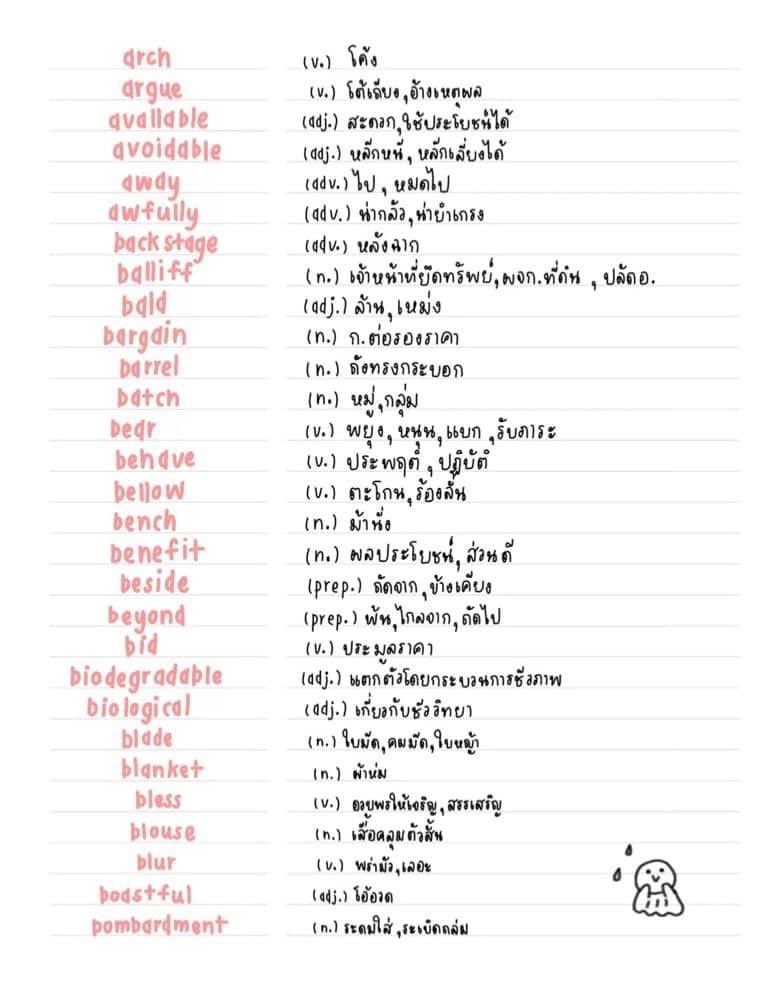 arch (v.) โค้ง
argue (v.) โต้เถียง,อ้างเหตุผล
available (adj.) สะดวก,ใช้ประโยชน์ได้
avoidable (adj.) หลีกหนี, หลีกเลี่ยงได้
away (adv.) ไป, หมดไป
awfully (adv.) น่ากลัว,น่ายำเกรง
backstage (adv.) หลังฉาก
bailiff (n.) เจ้าหน้าที่ยึดทรัพย์,ผจก.ที่ดิน , ปลัดอ.
bald (adj.) ล้าน, เหม่ง
bargain (n.) ก.ต่อรองราคา
barrel (n.) ถังทรงกระบอก
batch (n.) หมู่,กลุ่ม
bear (v.) พยุง, หนุน, แบก ,รับภาระ
behave (v.) ประพฤติ , ปฏิบัติ
bellow (v.) ตะโกน,ร้องลั่น
bench (n.) ม้านั่ง
benefit (n.) ผลประโยชน์, ส่วนดี
beside (prep.) ถัดจาก,ข้างเคียง
beyond (prep.) พ้น,ไกลจาก,ถัดไป
bid (v.) ประมูลราคา
biodegradable (adj.) แตกตัวโดยกระบวนการชีวภาพ
biological (adj.) เกี่ยวกับชีววิทยา
blade (n.) ใบมีด,คมมีด,ใบหญ้า
blanket (n.) ผ้าห่ม
bless (v.) อวยพรให้เจริญ,สรรเสริญ
blouse (n.) เสื้อคลุมตัวสั้น
blur (v.) พร่ามัว,เลอะ
boastful (adj.) โอ้อวด
bombardment (n.) ระดมใส่,ระเบิดถล่ม